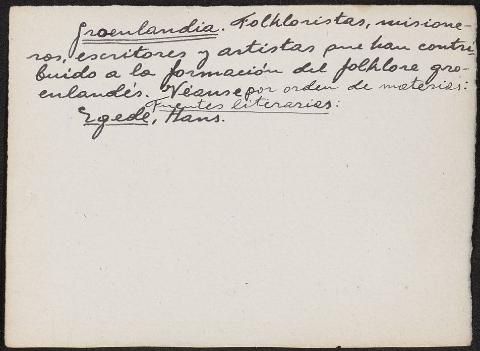 Groenlandia. Folkloristas, misione-
ros, escritores y artistas que han contri
buido a la formación del folklore gro-
enlandés. Véanse por orden de materias:
Fuentes literarias:
Egede, Hans.